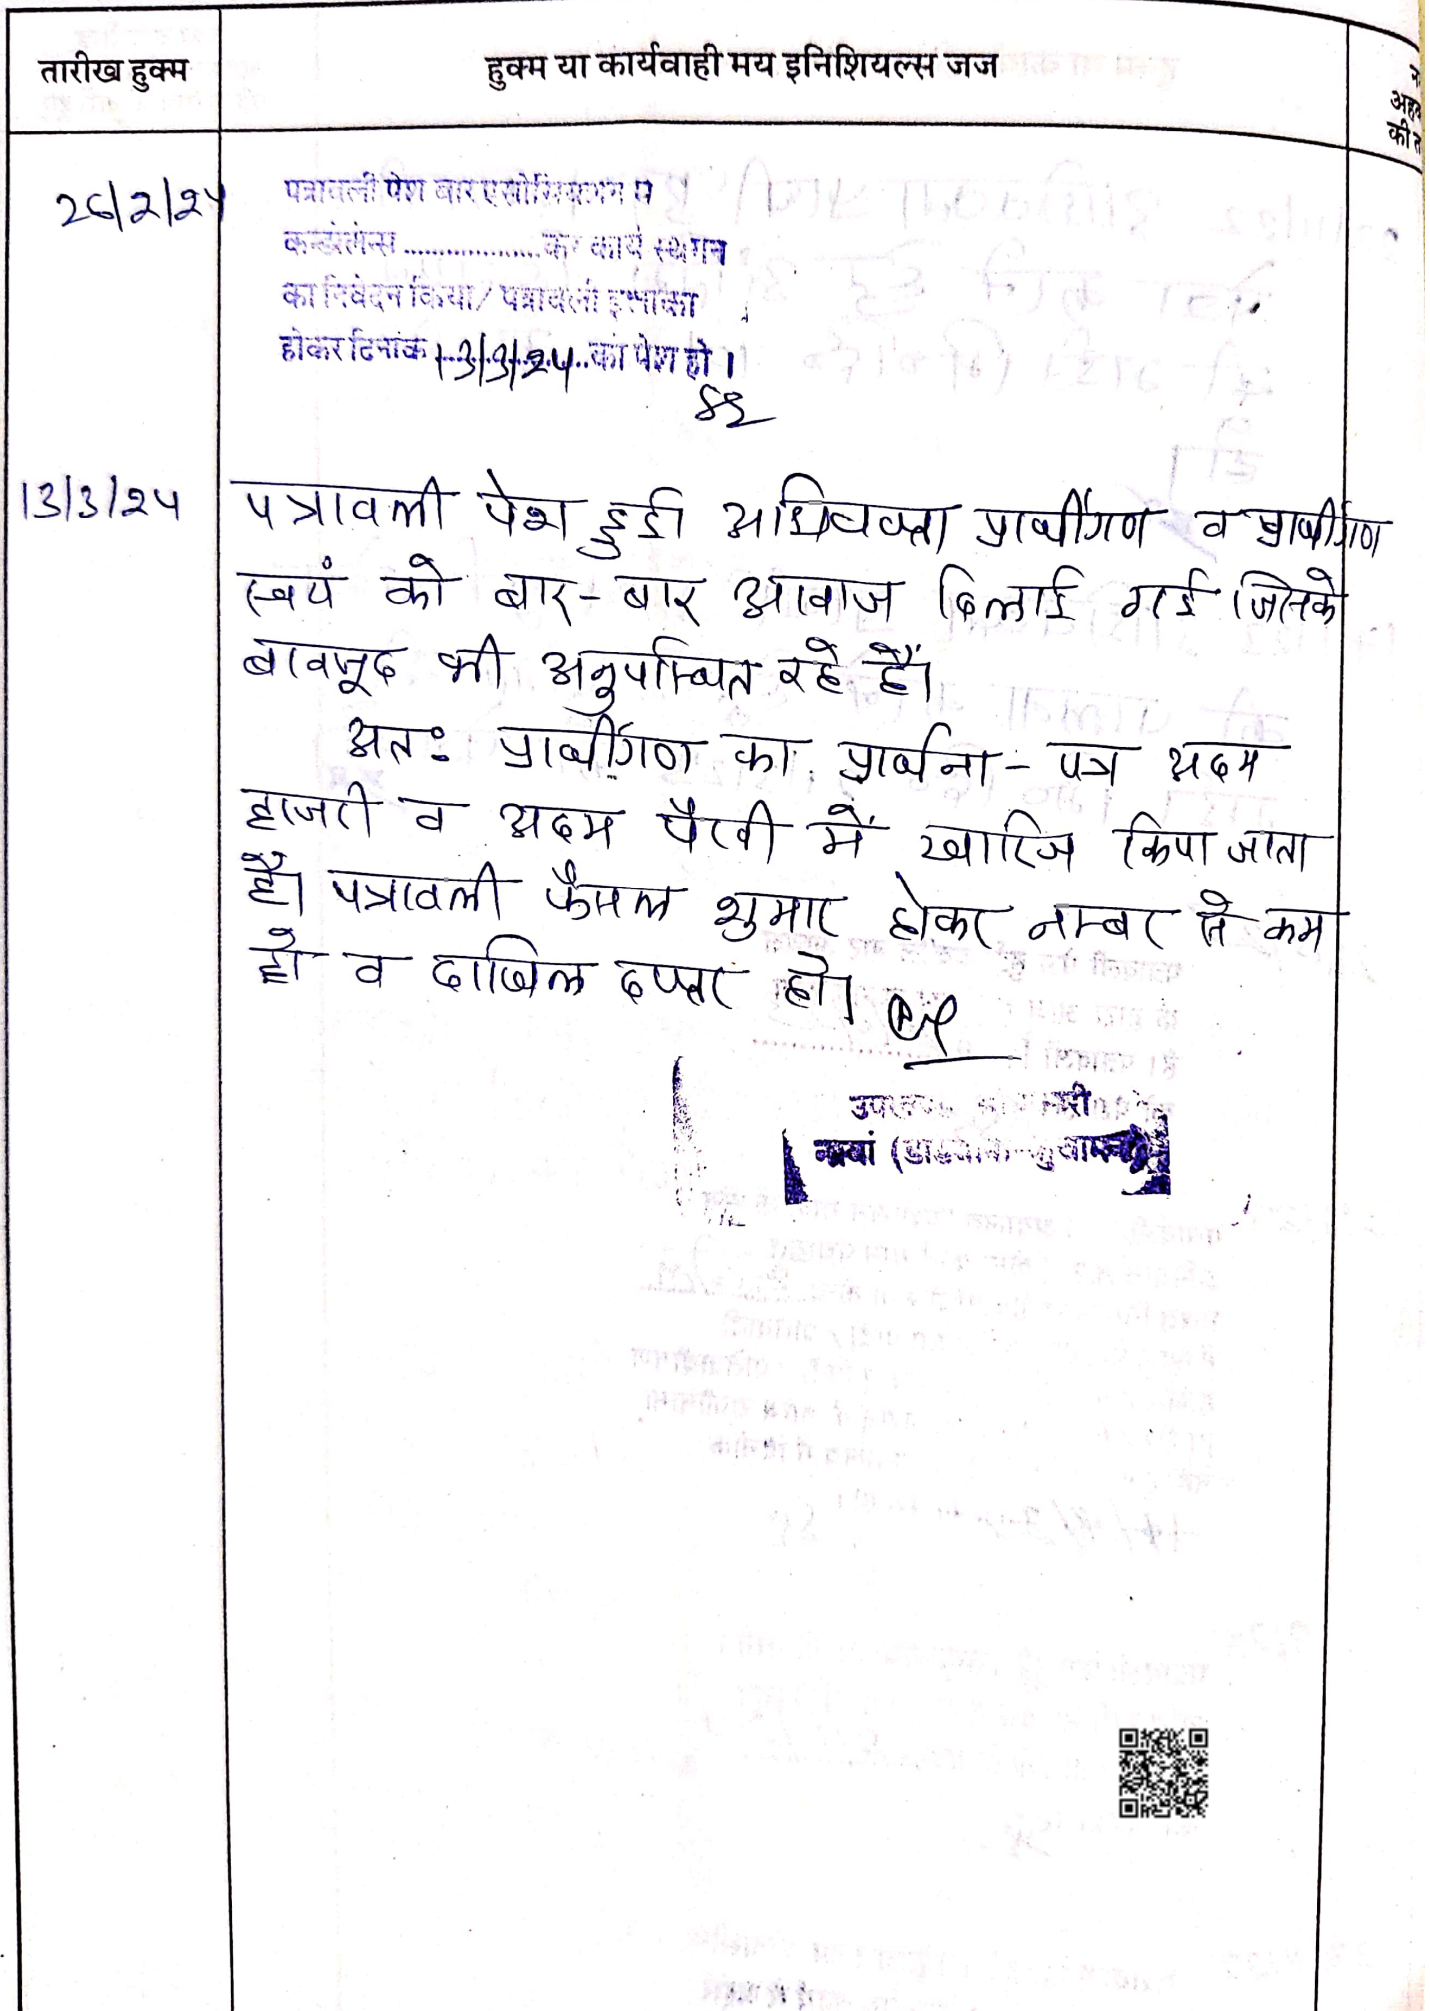 तारीख हुक्म
हुक्म या कार्यवाही मय इनिशियल्स जज
अहल
की त
26/2/24
पत्रावली पेश बार एसोसियेशन ने
कन्डोलेन्स ................... कर कार्य स्थगन
का निवेदन किया/ पत्रावली इलाका
होकर दिनांक 13/3/24 को पेश हो ।
13/3/24
पत्रावली पेश हुई। अधिवक्ता प्रार्थीगण व प्रार्थीगण
स्वयं को बार-बार आवाज दिलाई गई जिसके
बावजूद भी अनुपस्थित रहे हैं।
अतः प्रार्थीगण का प्रार्थना-पत्र अदम
हाजरी व अदम पैरवी में खारिज किया जाता
है। पत्रावली फैसल शुमार होकर नम्बर से कम
हो व दाखिल दफ्तर हो।
नावां